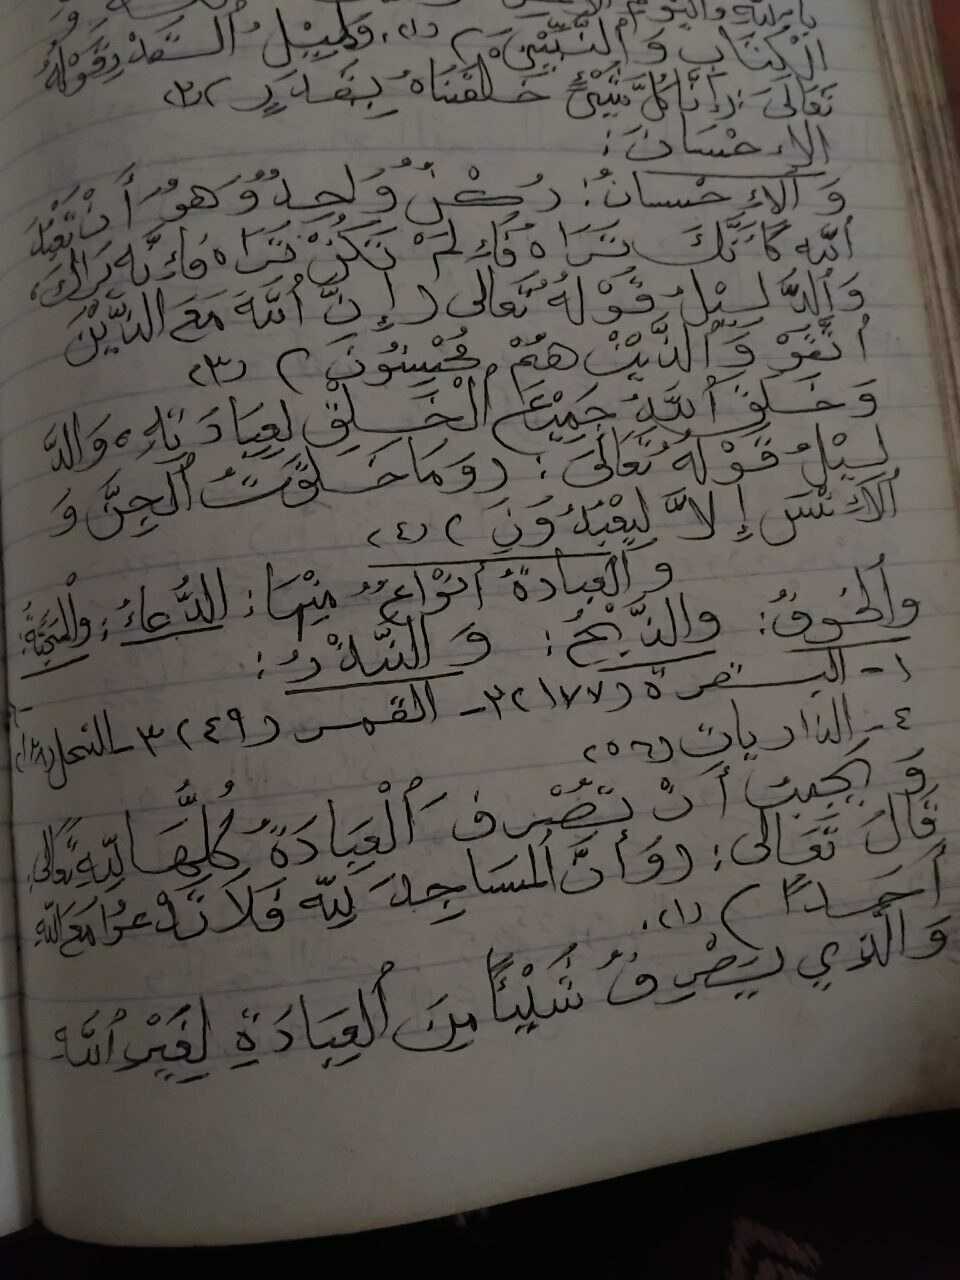 بِاللَّهِ وَالْيَوْمِ
الْكِتَابِ وَالنَّبِيِّينَ) (١). وَدَلِيلُ الْقَدَرِ قَوْلُهُ
تَعَالَى: (إِنَّا كُلَّ شَيْءٍ خَلَقْنَاهُ بِقَدَرٍ) (٢)
الإِحْسَانَ:
وَالإِحْسَانُ: رُكْنٌ وَاحِدٌ وَهُوَ أَنْ تَعْبُدَ
اللَّهَ كَأَنَّكَ تَرَاهُ فَإِلَمْ تَكُنْ تَرَاهُ فَإِنَّهُ يَرَاكَ،
وَالدَّلِيْلُ قَوْلُهُ تَعَالَى (إِنَّ اللَّهَ مَعَ الَّذِيْنَ
اتَّقَوْ وَالَّذِيْنَ هُمْ مُحْسِنُونَ) (٣)
وَخَلَقَ اللَّهُ جَمِيْعَ الْخَلْقِ لِعِبَادَتِهِ، وَالدَّ
لِيْلُ قَوْلُهُ تَعَالَى: (وَمَا خَلَقْتُ الْجِنَّ وَ
الْإِنْسَ إِلاَّ لِيَعْبُدُونِ) (٤)
وَالْعِبَادَةُ أَنْوَاعٌ مِنْهَا: الدُّعَاءُ: وَالْمَحَبَّةُ:
وَالْخَوفُ: وَالذَّبْحُ: وَالنَّذْرُ:
١- البقرة (١٧٧) ٢- القمر (٤٩) ٣- النحل (١٢٨)
٤- الذاريات (٥٦)
وَيَجِبُ أَنْ تُصْرِفَ الْعِبَادَةُ كُلُّهَا لِلَّهِ تَعَالَى:
قَالَ تَعَالَى: (وَأَنَّ الْمَسَاجِدَ لِلَّهِ فَلَا تَدْعُوا مَعَ اللَّهِ
أَحَدًا) (١).
وَالَّذِي يَصْرِفُ شَيْئًا مِنَ الْعِبَادَةِ لِغَيْرِ اللَّهِ